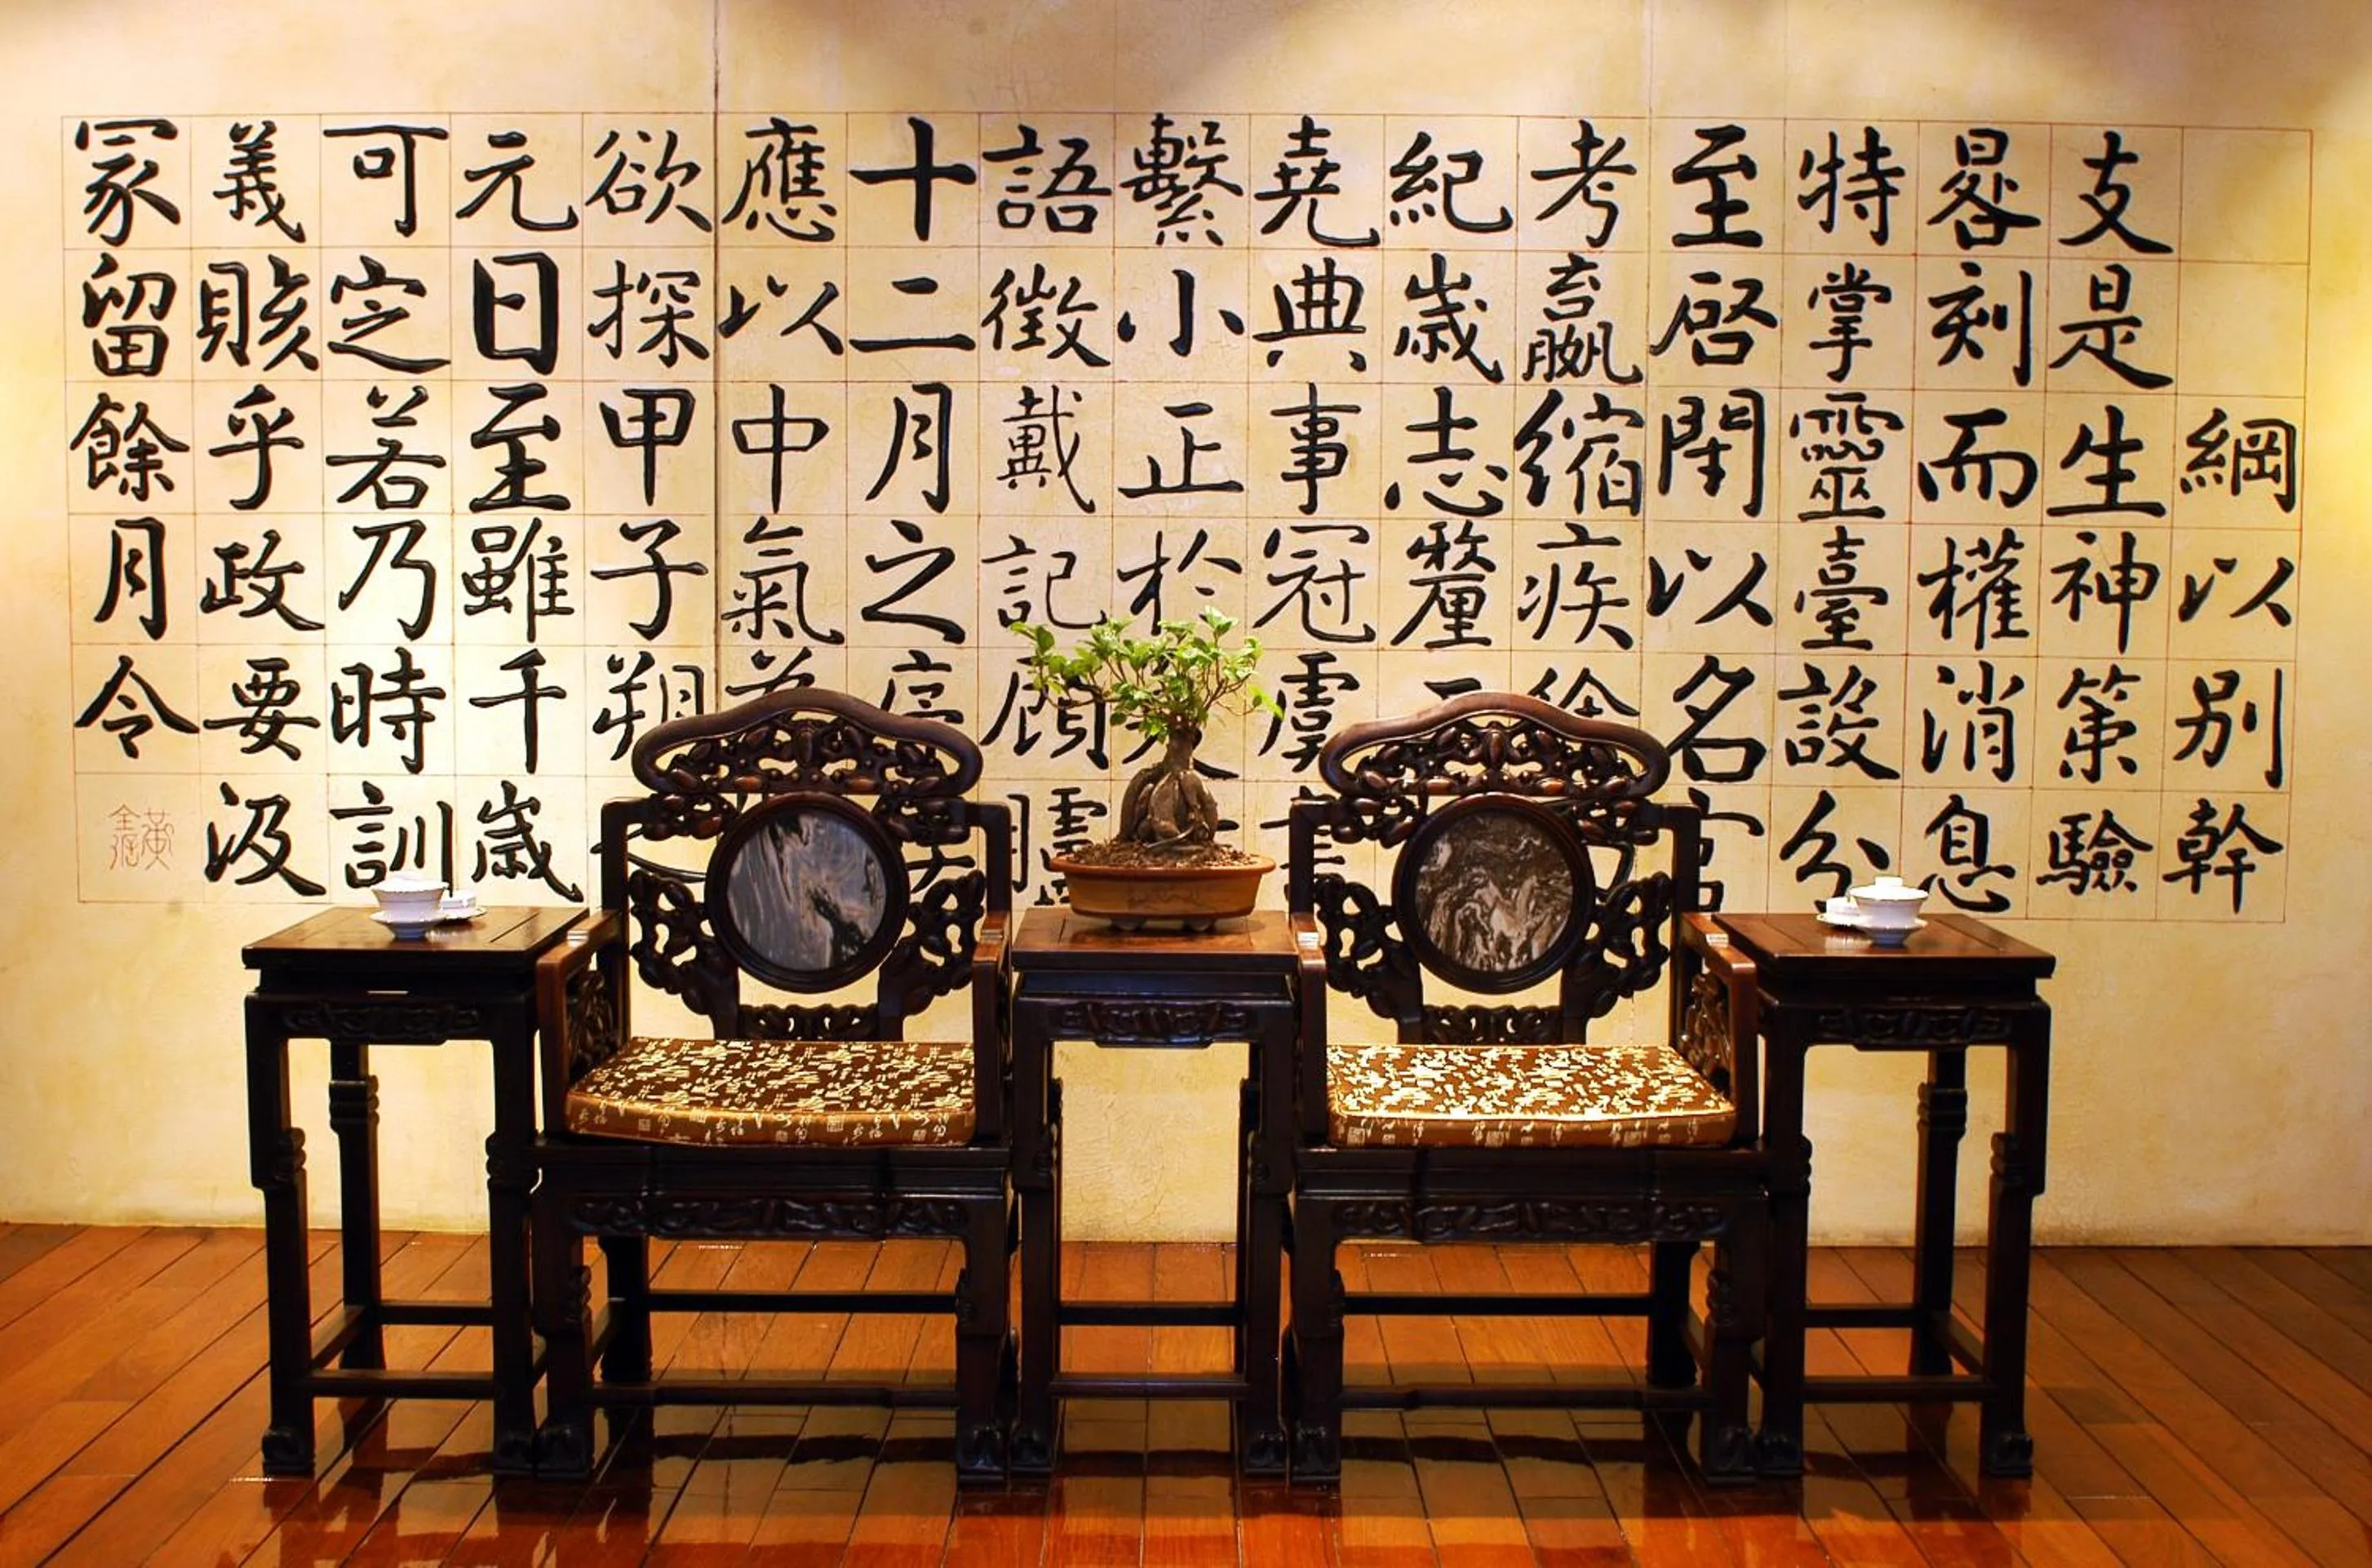 綱以别幹
支是生神策驗
晷刻而權消息
特掌靈臺設分
至启閇以名官
考嬴縮疾徐
紀歲志釐
堯典事冠虞
繫小正於
語徵戴記顧
十二月之序
應以中氣
欲探甲子朔
元日至雖千歲
可定若乃時訓
義賅乎政要汲
冡留餘月令